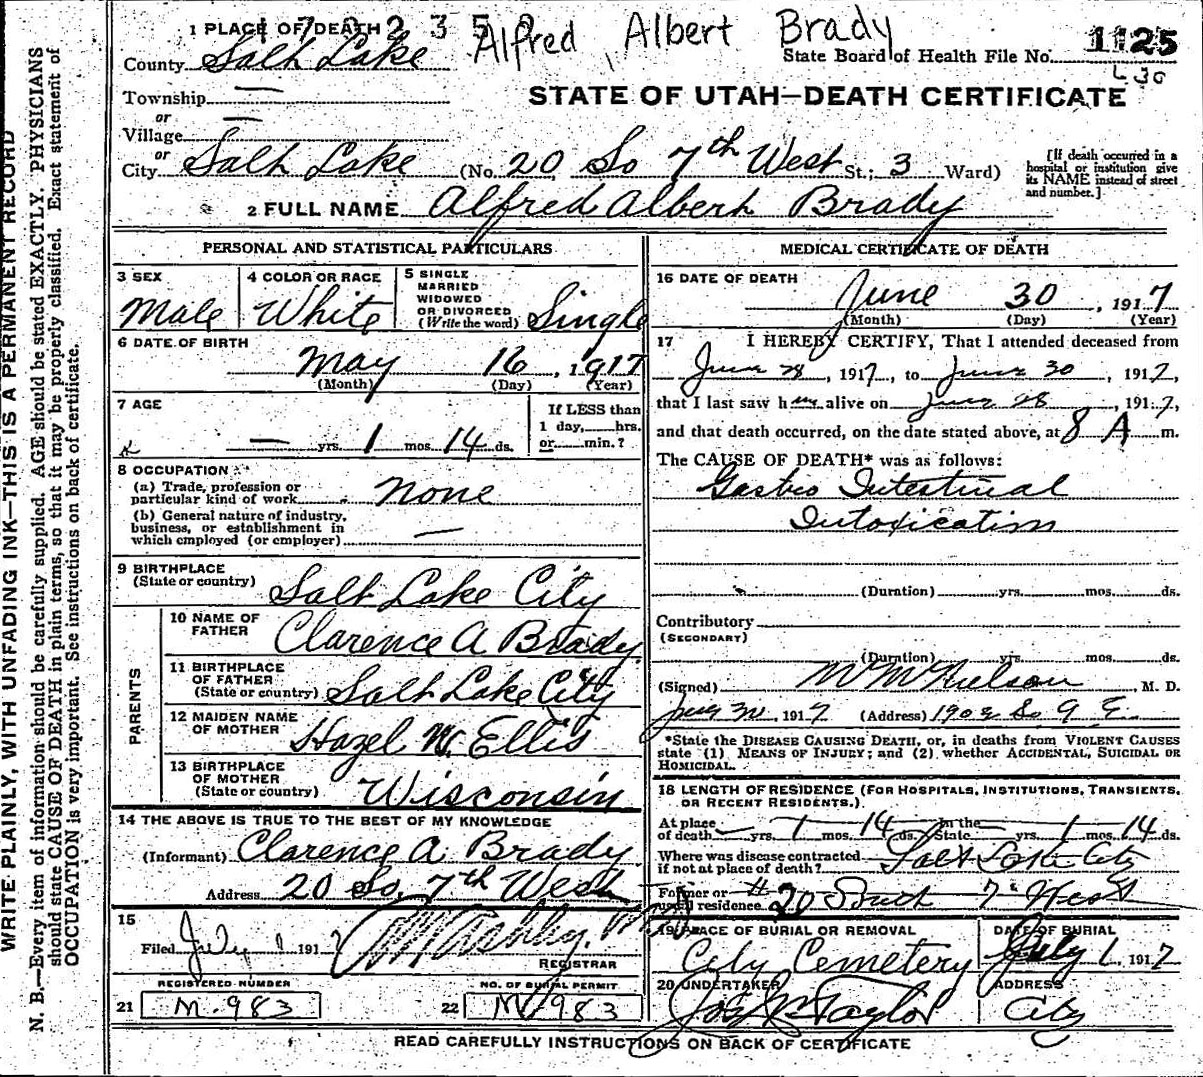 1 PLACE OF DEATH
Alfred Albert Brady
1125
County Salt Lake
State Board of Health File No.
L 30
Township —
STATE OF UTAH—DEATH CERTIFICATE
or
Village —
or
City Salt Lake (No. 20 So 7th West St.; 3 Ward)
[If death occurred in a
hospital or institution give
its NAME instead of street
and number.]
2 FULL NAME Alfred Albert Brady
PERSONAL AND STATISTICAL PARTICULARS
3 SEX
Male
4 COLOR OR RACE
White
5 SINGLE
MARRIED
WIDOWED
OR DIVORCED
(Write the word) Single
6 DATE OF BIRTH
May 16, 1917
(Month) (Day) (Year)
7 AGE
— yrs. 1 mos. 14 ds.
If LESS than
1 day,....hrs.
or....min.?
8 OCCUPATION
(a) Trade, profession or
particular kind of work none
(b) General nature of industry,
business, or establishment in
which employed (or employer) —
9 BIRTHPLACE
(State or country) Salt Lake City
PARENTS
10 NAME OF
FATHER Clarence A Brady
11 BIRTHPLACE
OF FATHER
(State or country) Salt Lake City
12 MAIDEN NAME
OF MOTHER Hazel W. Ellis
13 BIRTHPLACE
OF MOTHER
(State or country) Wisconsin
14 THE ABOVE IS TRUE TO THE BEST OF MY KNOWLEDGE
(Informant) Clarence A Brady
Address 20 So. 7th West
15
Filed July 1 1917
REGISTRAR
REGISTERED NUMBER
21 M. 983
NO. OF BURIAL PERMIT
22 M 983
MEDICAL CERTIFICATE OF DEATH
16 DATE OF DEATH
June 30, 1917
(Month) (Day) (Year)
17 I HEREBY CERTIFY, That I attended deceased from
June 28, 1917, to June 30, 1917,
that I last saw him alive on June 28, 1917,
and that death occurred, on the date stated above, at 8 A m.
The CAUSE OF DEATH* was as follows:
Gastro Intestinal
Intoxication
(Duration) yrs. mos. ds.
Contributory
(SECONDARY)
(Duration) yrs. mos. ds.
(Signed) M M Nielson M. D.
1917 (Address) 1902 So 9 E.
*State the DISEASE CAUSING DEATH, or, in deaths from VIOLENT CAUSES
state (1) MEANS OF INJURY; and (2) whether ACCIDENTAL, SUICIDAL OR
HOMICIDAL.
18 LENGTH OF RESIDENCE (FOR HOSPITALS, INSTITUTIONS, TRANSIENTS,
OR RECENT RESIDENTS.)
At place
of death — yrs. 1 mos. 14 ds. In the
State — yrs. 1 mos. 14 ds.
Where was disease contracted
if not at place of death? Salt Lake City
Former or
usual residence # 20 South 7 West
19 PLACE OF BURIAL OR REMOVAL
City Cemetery
DATE OF BURIAL
July 1, 1917
20 UNDERTAKER
Jos Wm Taylor
ADDRESS
City
READ CAREFULLY INSTRUCTIONS ON BACK OF CERTIFICATE
WRITE PLAINLY, WITH UNFADING INK—THIS IS A PERMANENT RECORD
N. B.—Every item of information should be carefully supplied. AGE should be stated EXACTLY. PHYSICIANS
should state CAUSE OF DEATH in plain terms, so that it may be properly classified. Exact statement of
OCCUPATION is very important. See instructions on back of certificate.